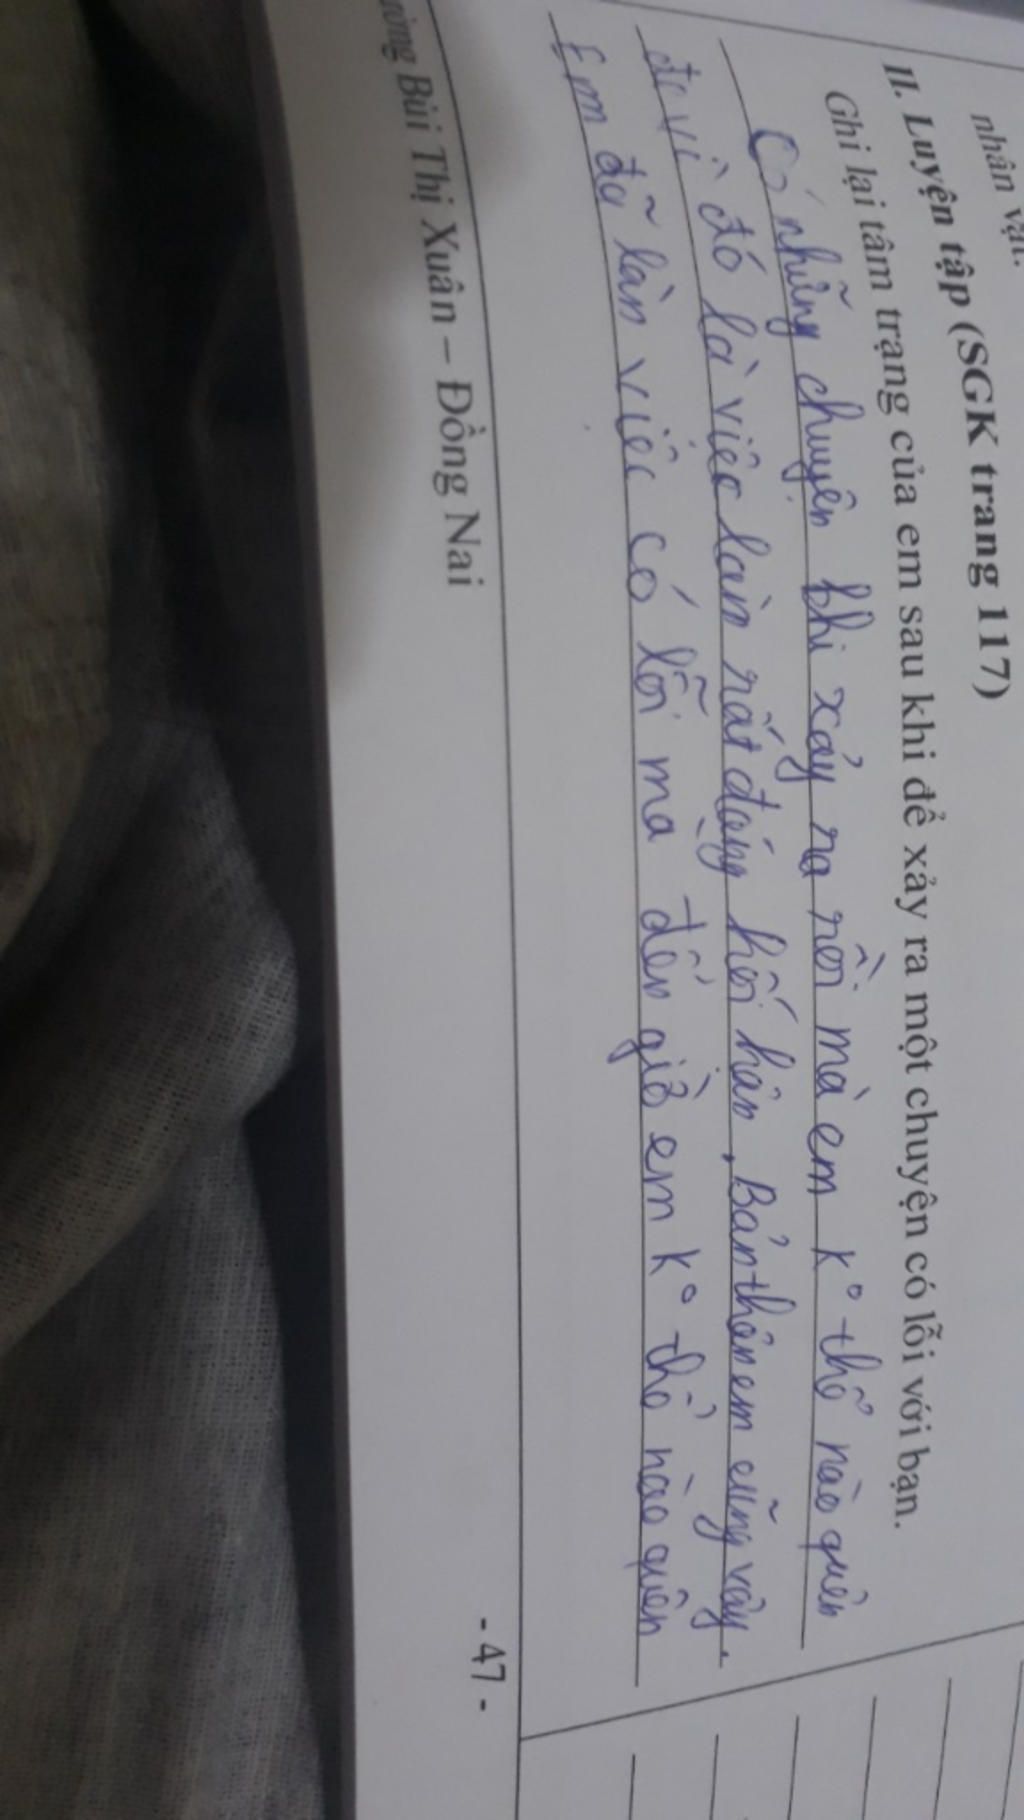 nhân vật.
II. Luyện tập (SGK trang 117)
Ghi lại tâm trạng của em sau khi để xảy ra một chuyện có lỗi với bạn.
Có những chuyện khi xảy ra rồi mà em k° thể nào quên
đc vì đó là việc làm rất đáng hối hận, Bản thân em cũng vậy.
Em đã làn việc có lỗi mà đến giờ em k° thể nào quên
ường Bùi Thị Xuân – Đồng Nai
- 47 -